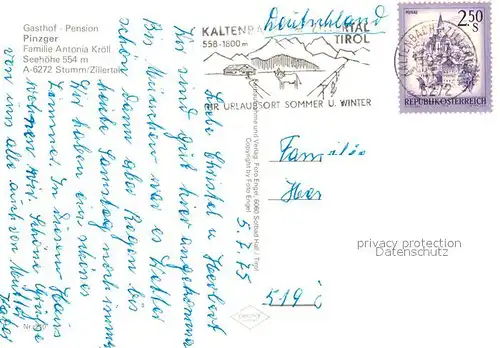 Gasthof - Pension
Pinzger
Familie Antonia Kröll
Seehöhe 554 m
A-6272 Stumm/Zillertal
Deutschland
KALTENBACH
TIROL
558-1800 m
IHR URLAUBSORT SOMMER U. WINTER
MURAU
2.50
S
REPUBLIK ÖSTERREICH
6272
5.7.75
Liebe Christel u. Herbert
Wir sind gut hier angekommen
Bis München war es
schön dann aber Regen bis
heute Samstag noch immer
Wir haben ein schönes
Zimmer. In diesem Haus
wohnen wir. Schöne Grüße
von uns alle auch von
Familie
519
Aufnahme und Verlag: Foto Engel, 6060 Solbad Hall / Tirol
Copyright by Foto Engel
privacy protection
Datenschutz